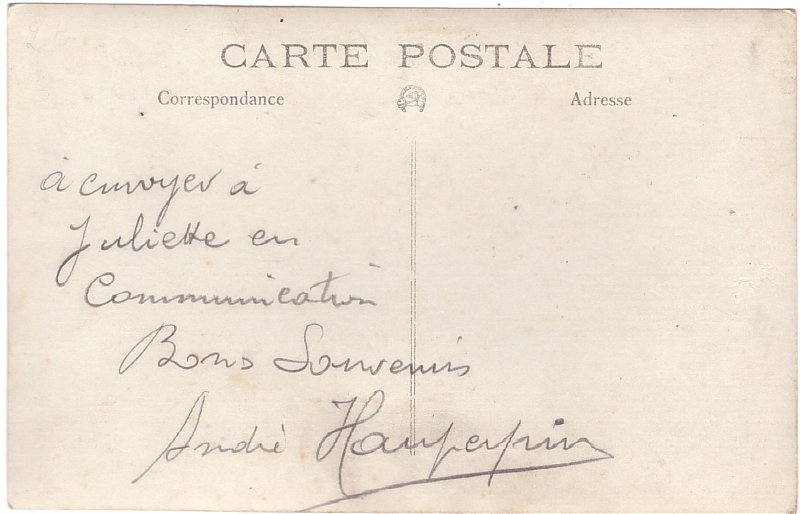 CARTE POSTALE
Correspondance Adresse
à envoyer à
Juliette en
Communication
Bons Souvenirs
André